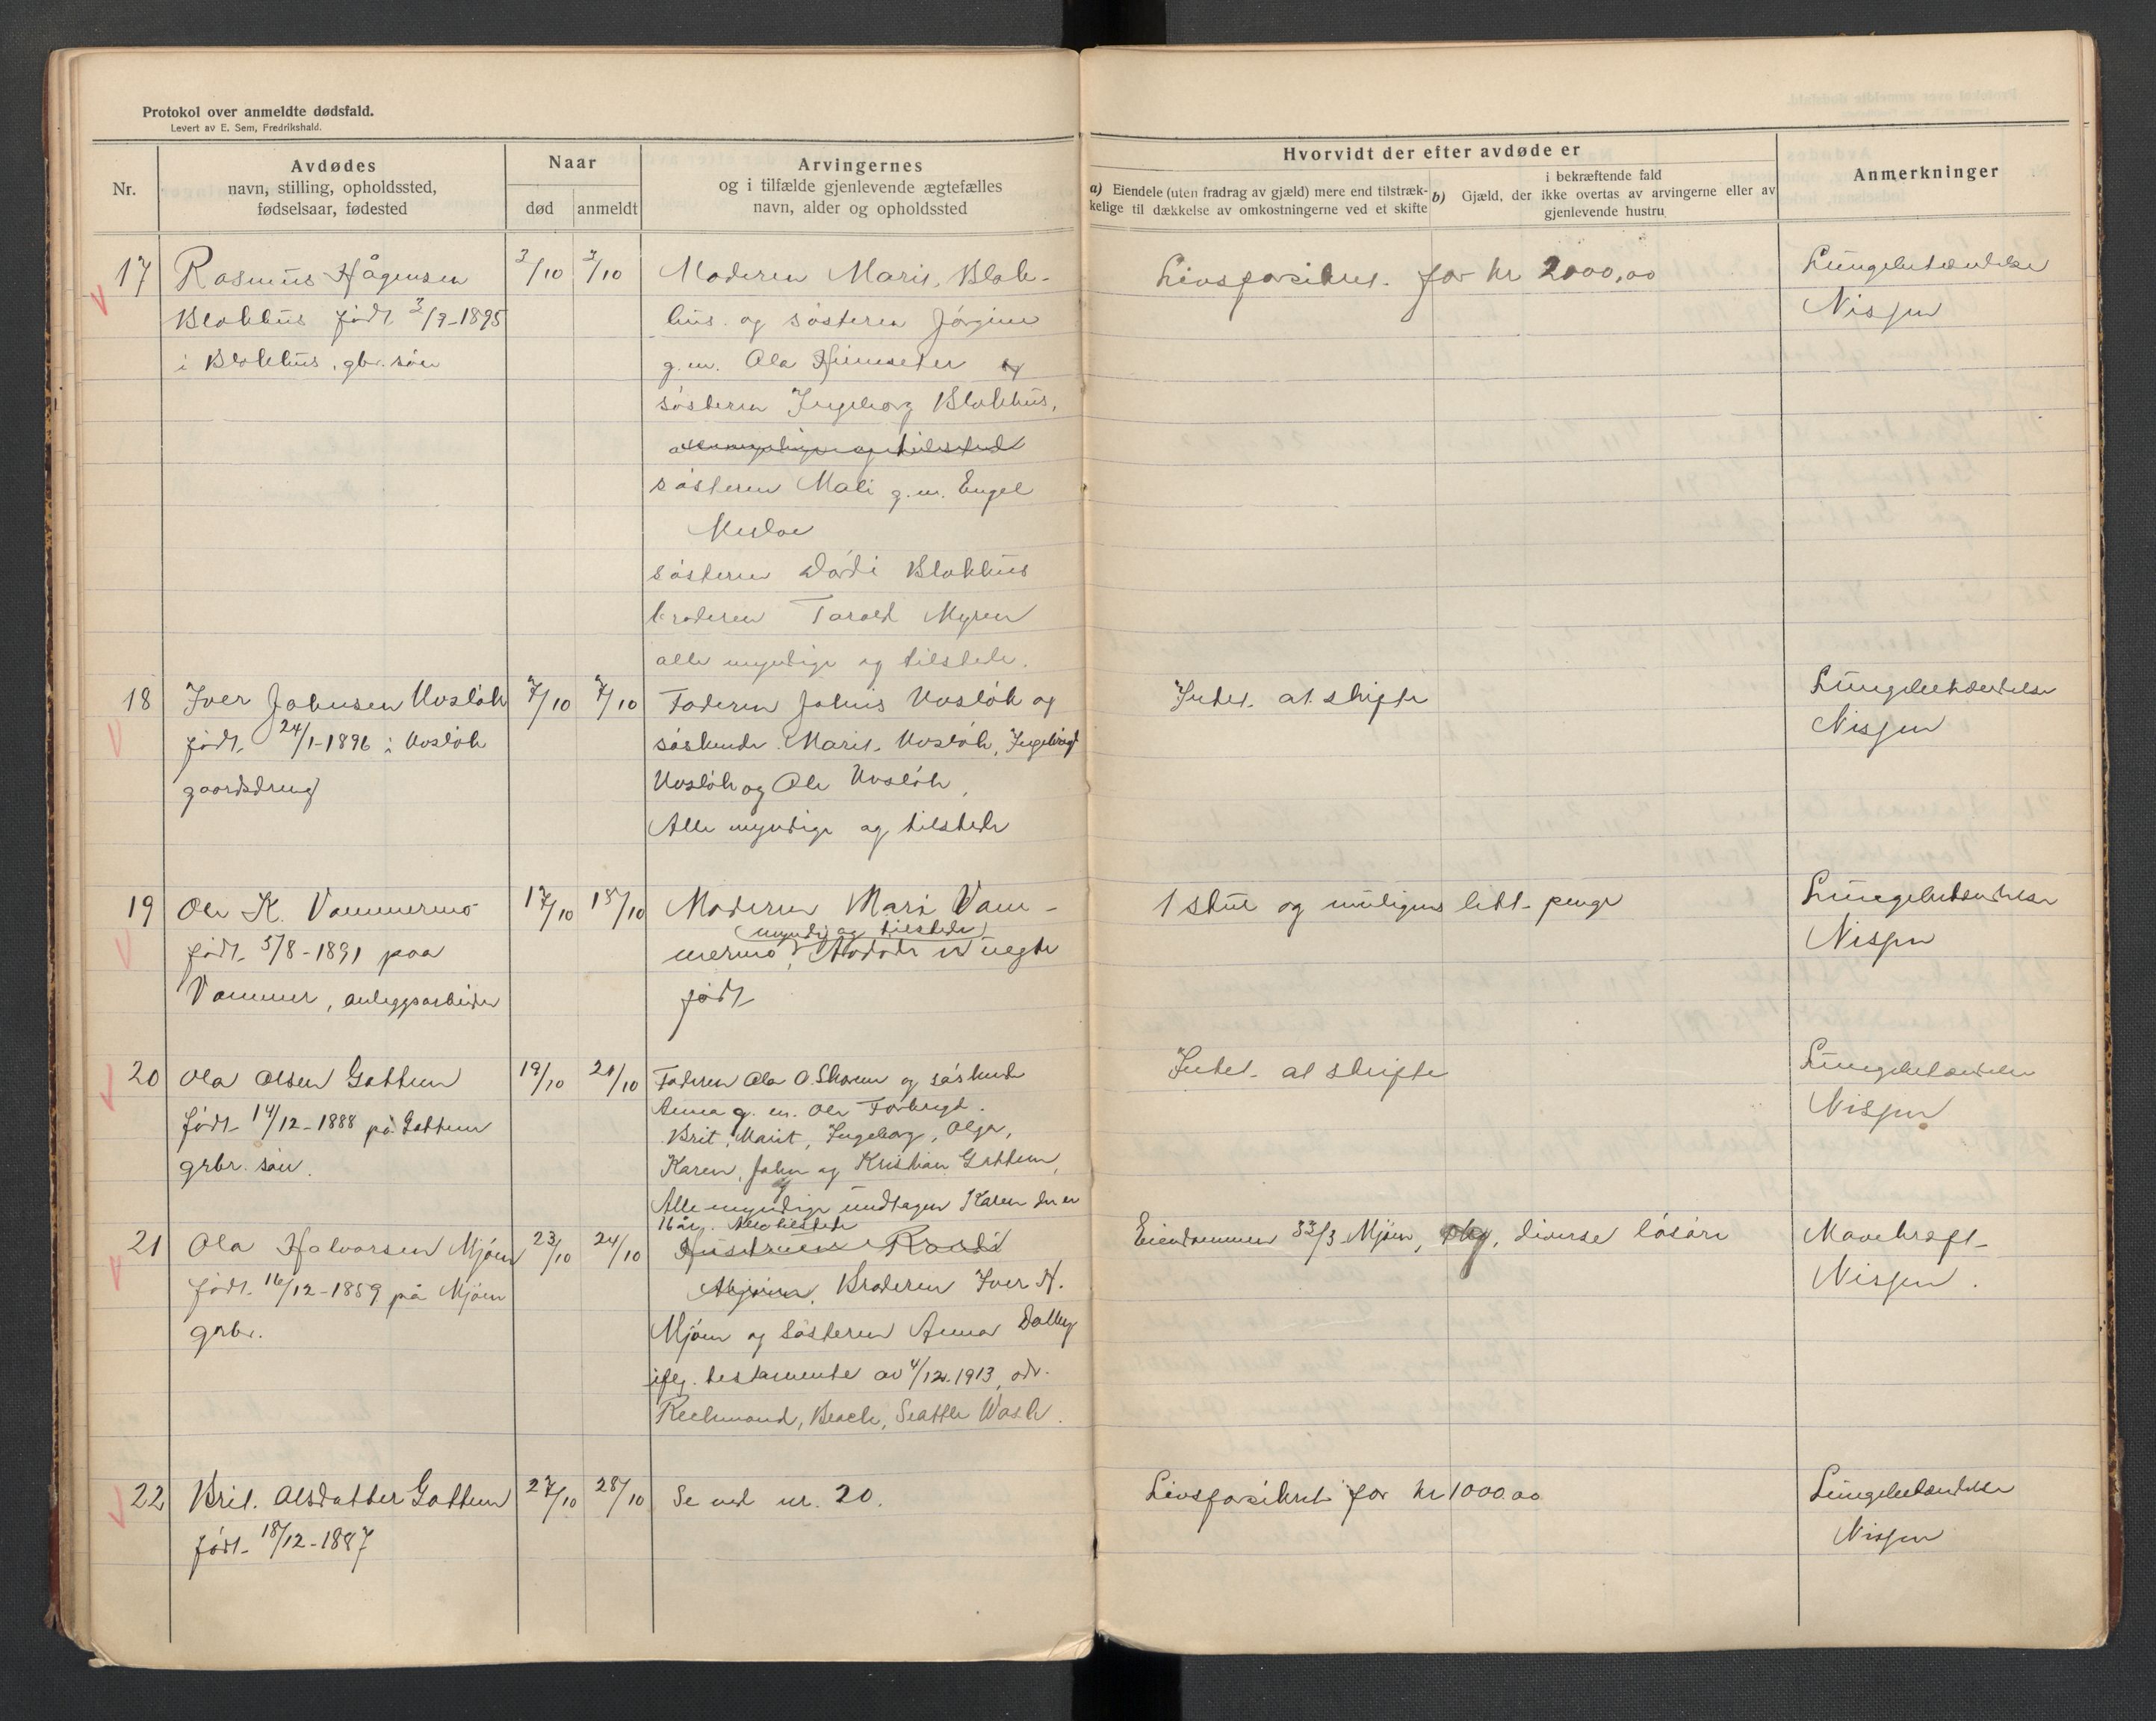 Protokol over anmeldte dødsfald.
Levert av E. Sem, Fredrikshald.
Nr.
Avdødes
navn, stilling, opholdssted,
fødselsaar, fødested
Naar
død
anmeldt
Arvingernes
og i tilfælde gjenlevende ægtefælles
navn, alder og opholdssted
Hvorvidt der efter avdøde er
a) Eiendele (uten fradrag av gjæld) mere end tilstræk-
kelige til dækkelse av omkostningerne ved et skifte
i bekræftende fald
b) Gjæld, der ikke overtas av arvingerne eller av
gjenlevende hustru
Anmerkninger
17
Rasmus Hågensen
Blokhus født 3/9-1895
i Blokhus, gbr. søn
3/10
3/10
Moderen Marit Blok-
hus og søsteren Jørgine
g.m. Ola Hiimseter og
søsteren Ingeborg Blokhus,
alle myndige og tilstede
søsteren Mali g.m. Engel
Mesloe
søsteren Dordi Blokhus
broderen Tarald Myren
alle myndige og tilstede.
Livsforsikret for kr 2000,00
Lungebetændelse
Nisjen
18
Iver Johnsen Uvsløk
født 24/1-1896 i Uvsløk
gaardsdreng
7/10
7/10
Faderen Johns Uvsløk og
søskende Marit Uvsløk, Ingebrigt
Uvsløk og Ole Uvsløk,
Alle myndige og tilstede
Intet at skifte
Lungebetændelse
Nisjen
19
Ole K. Vammermo
født 5/8-1891 paa
Vammer, anleggsarbeider
17/10
18/10
Moderen Mari Vam-
(myndig og tilstede)
mermo, Avdøde er uegte
født
1 stue og muligens litt penge
Lungebetændelse
Nisjen
20
Ola Olsen Gottem
født 14/12-1888 på Gottem
grbr. søn.
19/10
21/10
Faderen Ola O. Skorem og søskende
Anna g.m. Ole Forbregt.
Brit, Marit, Ingeborg, Olga,
Karen, John og Kristian Gottem,
Alle myndige undtagen Karen der er
16 år. Alle tilstede
Intet at skifte
Lungebetændelse
Nisjen
21
Ola Halvorsen Mjøen
født 16/12-1859 på Mjøen
grbr.
23/10
24/10
Hustruen Randi
Mjøen. Broderen Iver H.
Mjøen og søsteren Anna Dalley
iflg. testamente av 4/12.1913, adr.
Reehmond, Beach, Seattle Wash.
Eiendommen 33/3 Mjøen, og, diverse løsøre
Mavekræft
Nisjen.
22
Brit Olsdatter Gottem
født 18/12-1887
27/10
28/10
Se ved nr. 20.
Livsforsikret for kr 1000.00
Lungebetændelse
Nisjen